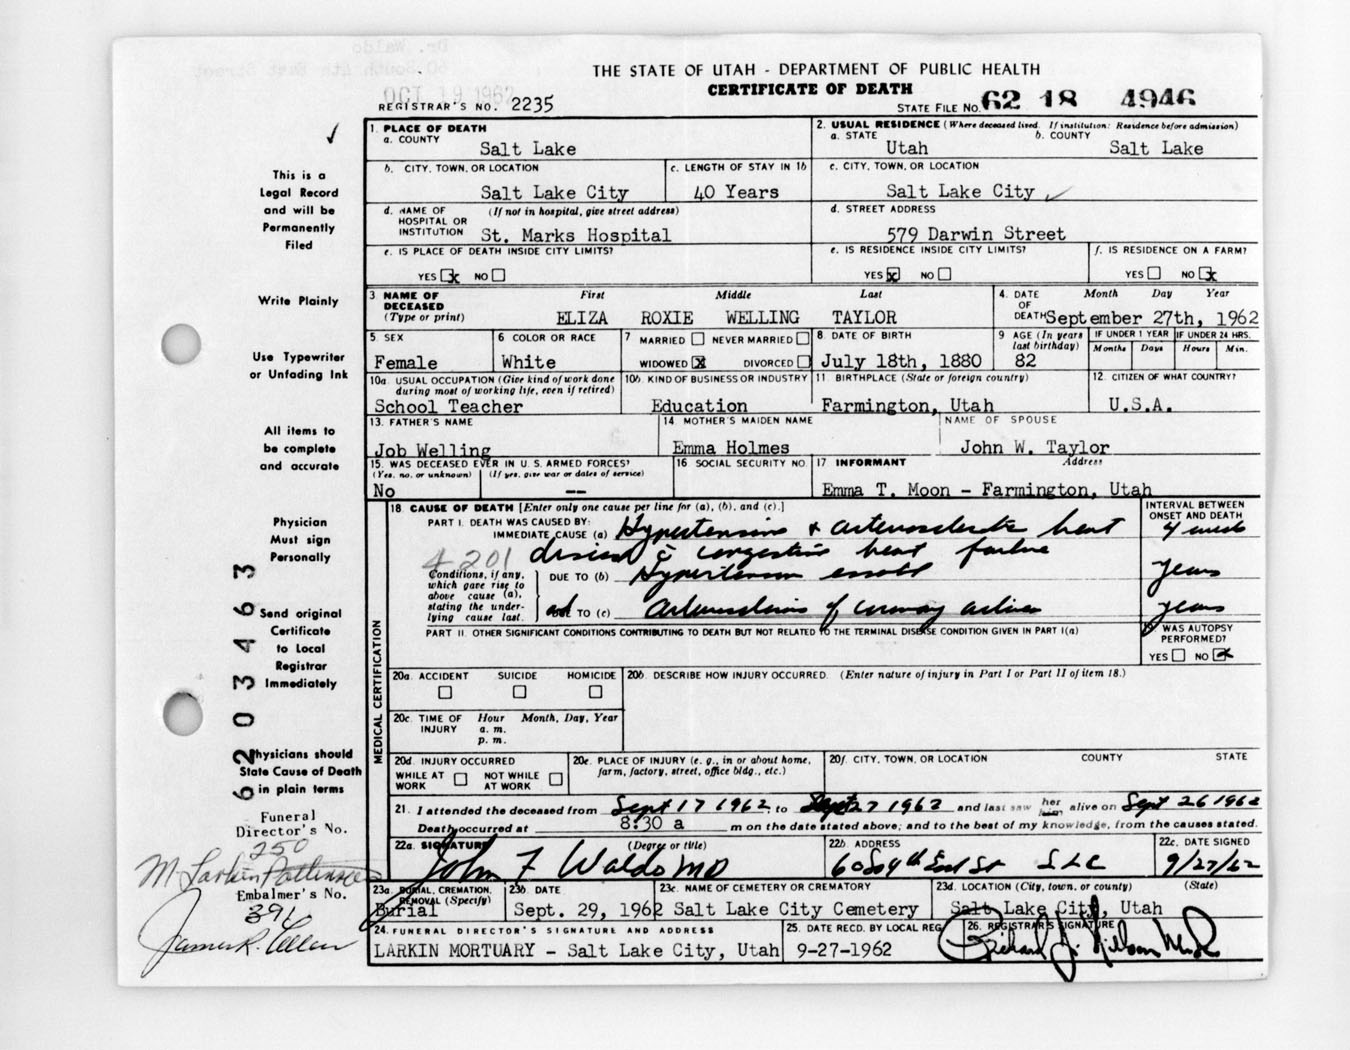 THE STATE OF UTAH - DEPARTMENT OF PUBLIC HEALTH
CERTIFICATE OF DEATH
OCT 19 1962
REGISTRAR'S NO. 2235
STATE FILE NO. 62 18 4946
This is a
Legal Record
and will be
Permanently
Filed
Write Plainly
Use Typewriter
or Unfading Ink
All items to
be complete
and accurate
Physician
Must sign
Personally
Send original
Certificate
to Local
Registrar
Immediately
Physicians should
State Cause of Death
in plain terms
6203463
Funeral
Director's No.
250
M. Larkin
Embalmer's No.
391
James R.
1. PLACE OF DEATH
a. COUNTY
Salt Lake
2. USUAL RESIDENCE (Where deceased lived. If institution: Residence before admission)
a. STATE b. COUNTY
Utah Salt Lake
b. CITY, TOWN, OR LOCATION
Salt Lake City
c. LENGTH OF STAY IN 1b
40 Years
c. CITY, TOWN, OR LOCATION
Salt Lake City
d. NAME OF HOSPITAL OR INSTITUTION (If not in hospital, give street address)
St. Marks Hospital
d. STREET ADDRESS
579 Darwin Street
e. IS PLACE OF DEATH INSIDE CITY LIMITS?
YES x NO
e. IS RESIDENCE INSIDE CITY LIMITS?
YES x NO
f. IS RESIDENCE ON A FARM?
YES NO x
3 NAME OF DECEASED (Type or print) First Middle Last
ELIZA ROXIE WELLING TAYLOR
4. DATE OF DEATH Month Day Year
September 27th, 1962
5. SEX
Female
6 COLOR OR RACE
White
7 MARRIED NEVER MARRIED
WIDOWED X DIVORCED
8. DATE OF BIRTH
July 18th, 1880
9 AGE (In years last birthday)
82
IF UNDER 1 YEAR IF UNDER 24 HRS.
Months Days Hours Min.
10a. USUAL OCCUPATION (Give kind of work done during most of working life, even if retired)
School Teacher
10b. KIND OF BUSINESS OR INDUSTRY
Education
11. BIRTHPLACE (State or foreign country)
Farmington, Utah
12. CITIZEN OF WHAT COUNTRY?
U.S.A.
13. FATHER'S NAME
Job Welling
14 MOTHER'S MAIDEN NAME
Emma Holmes
NAME OF SPOUSE
John W. Taylor
15. WAS DECEASED EVER IN U.S. ARMED FORCES?
(Yes, no, or unknown) (If yes, give war or dates of service)
No --
16 SOCIAL SECURITY NO.
17 INFORMANT Address
Emma T. Moon - Farmington, Utah
MEDICAL CERTIFICATION
18. CAUSE OF DEATH [Enter only one cause per line for (a), (b), and (c).]
INTERVAL BETWEEN ONSET AND DEATH
PART I. DEATH WAS CAUSED BY:
IMMEDIATE CAUSE (a) Hypertensive & arteriosclerotic heart
disease c congestive heart failure
4 weeks
4201
Conditions, if any, which gave rise to above cause (a), stating the underlying cause last.
DUE TO (b) Hypertension
years
and TO (c) Arteriosclerosis of coronary arteries
years
PART II. OTHER SIGNIFICANT CONDITIONS CONTRIBUTING TO DEATH BUT NOT RELATED TO THE TERMINAL DISEASE CONDITION GIVEN IN PART I(a)
19. WAS AUTOPSY PERFORMED?
YES NO x
20a. ACCIDENT SUICIDE HOMICIDE
20b. DESCRIBE HOW INJURY OCCURRED. (Enter nature of injury in Part I or Part II of item 18.)
20c. TIME OF INJURY Hour Month, Day, Year
a. m.
p. m.
20d. INJURY OCCURRED
WHILE AT WORK NOT WHILE AT WORK
20e. PLACE OF INJURY (e. g., in or about home, farm, factory, street, office bldg., etc.)
20f. CITY, TOWN, OR LOCATION COUNTY STATE
21. I attended the deceased from Sept 17 1962, to Sept 27 1962 and last saw her him alive on Sept 26 1962
Death occurred at 8:30 a m on the date stated above; and to the best of my knowledge, from the causes stated.
22a. SIGNATURE (Degree or title)
John F Waldo MD
22b. ADDRESS
60 So 4th East St SLC
22c. DATE SIGNED
9/27/62
23a. BURIAL, CREMATION, REMOVAL (Specify)
Burial
23b. DATE
Sept. 29, 1962
23c. NAME OF CEMETERY OR CREMATORY
Salt Lake City Cemetery
23d. LOCATION (City, town, or county) (State)
Salt Lake City, Utah
24. FUNERAL DIRECTOR'S SIGNATURE AND ADDRESS
LARKIN MORTUARY - Salt Lake City, Utah
25. DATE RECD. BY LOCAL REG.
9-27-1962
26. REGISTRAR'S SIGNATURE
Richard J. Nelson